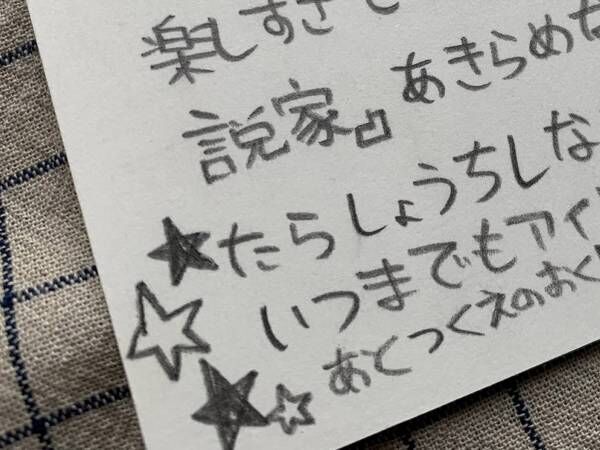 楽しすぎ
説家』あきらめ
★たらしょうちしな
☆いつまでもアイ
★☆あとつくえのおく